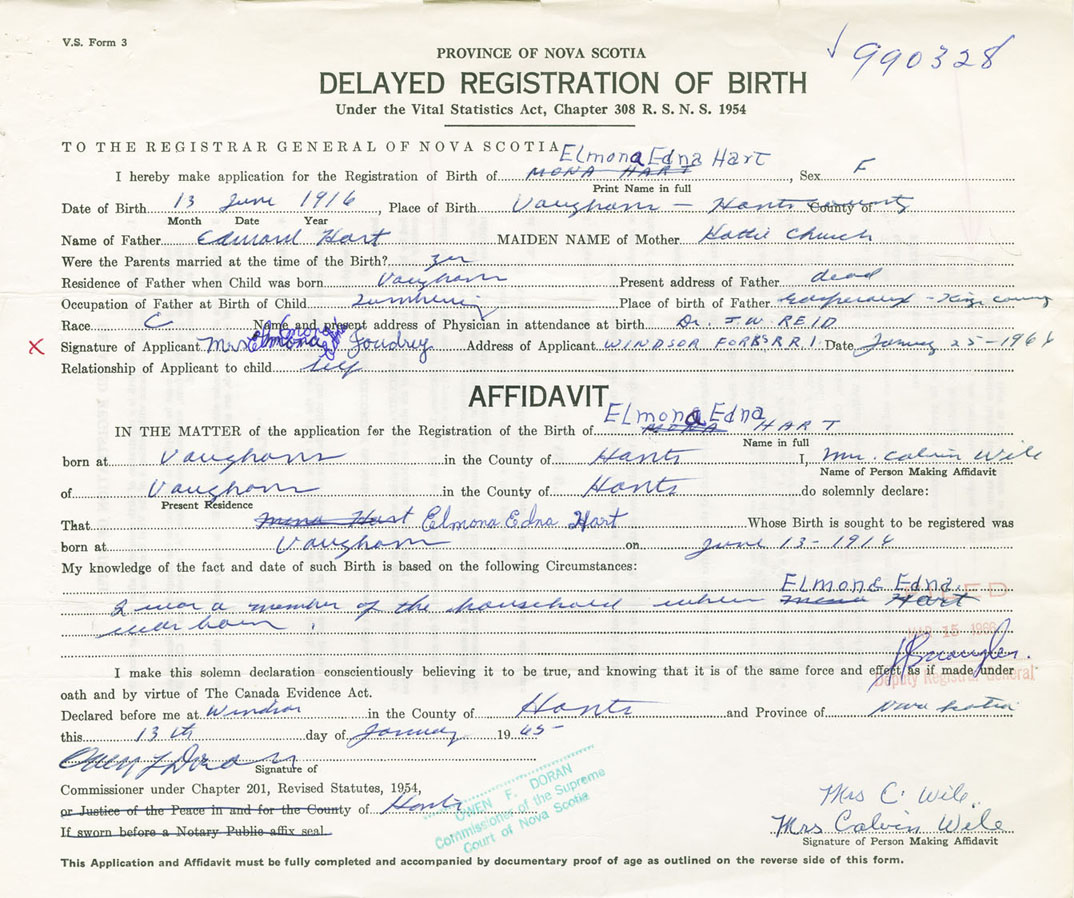 V.S. Form 3
990328
PROVINCE OF NOVA SCOTIA
DELAYED REGISTRATION OF BIRTH
Under the Vital Statistics Act, Chapter 308 R. S. N. S. 1954
TO THE REGISTRAR GENERAL OF NOVA SCOTIA
Elmona Edna Hart
I hereby make application for the Registration of Birth of MONA HART, Sex F
Print Name in full
Date of Birth 13 June 1916, Place of Birth Vaughan - Hants County of
Month Date Year
Name of Father Edward Hart MAIDEN NAME of Mother Hattie Church
Were the Parents married at the time of the Birth? yes
Residence of Father when Child was born Vaughan Present address of Father dead
Occupation of Father at Birth of Child Place of birth of Father Gaspereaux - Kings County
Race C Name and present address of Physician in attendance at birth Dr. J.W. REID
X Signature of Applicant Mrs Elmona Joudrey Address of Applicant WINDSOR FORKS R R 1 Date January 25 - 1966
Relationship of Applicant to child self
AFFIDAVIT
Elmona Edna
IN THE MATTER of the application for the Registration of the Birth of MONA HART
Name in full
born at Vaughan in the County of Hants I, Mrs. Calvin Wile
Name of Person Making Affidavit
of Vaughan in the County of Hants do solemnly declare:
Present Residence
That Mona Hart Elmona Edna Hart Whose Birth is sought to be registered was
born at Vaughan on June 13 - 1916
My knowledge of the fact and date of such Birth is based on the following Circumstances:
Elmona Edna
I was a member of the household when Mona Hart
was born.
MAR 15 1966
I make this solemn declaration conscientiously believing it to be true, and knowing that it is of the same force and effect as if made under
Deputy Registrar General
oath and by virtue of The Canada Evidence Act.
Declared before me at Windsor in the County of Hants and Province of Nova Scotia
this 13th day of January 1965
Owen F Doran
Signature of
Commissioner under Chapter 201, Revised Statutes, 1954,
or Justice of the Peace in and for the County of Hants
If sworn before a Notary Public affix seal
OWEN F. DORAN
Commissioner of the Supreme
Court of Nova Scotia
Mrs C. Wile.
Mrs Calvin Wile
Signature of Person Making Affidavit
This Application and Affidavit must be fully completed and accompanied by documentary proof of age as outlined on the reverse side of this form.